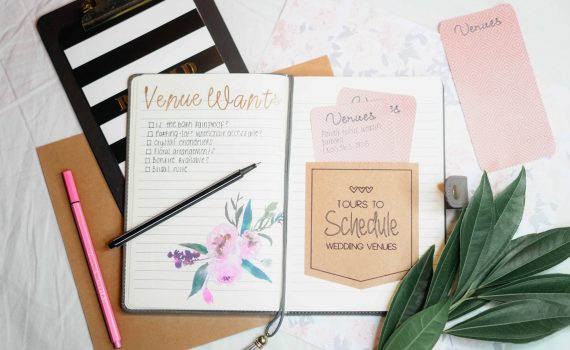 Venue Want
Is the barn rainproof?
Parking lot wheelchair accessible?
Crystal chandeliers
Floral arrangements
Bonfire available?
Bridal suite
Venues
TOURS TO
Schedule
WEDDING VENUES
Venues